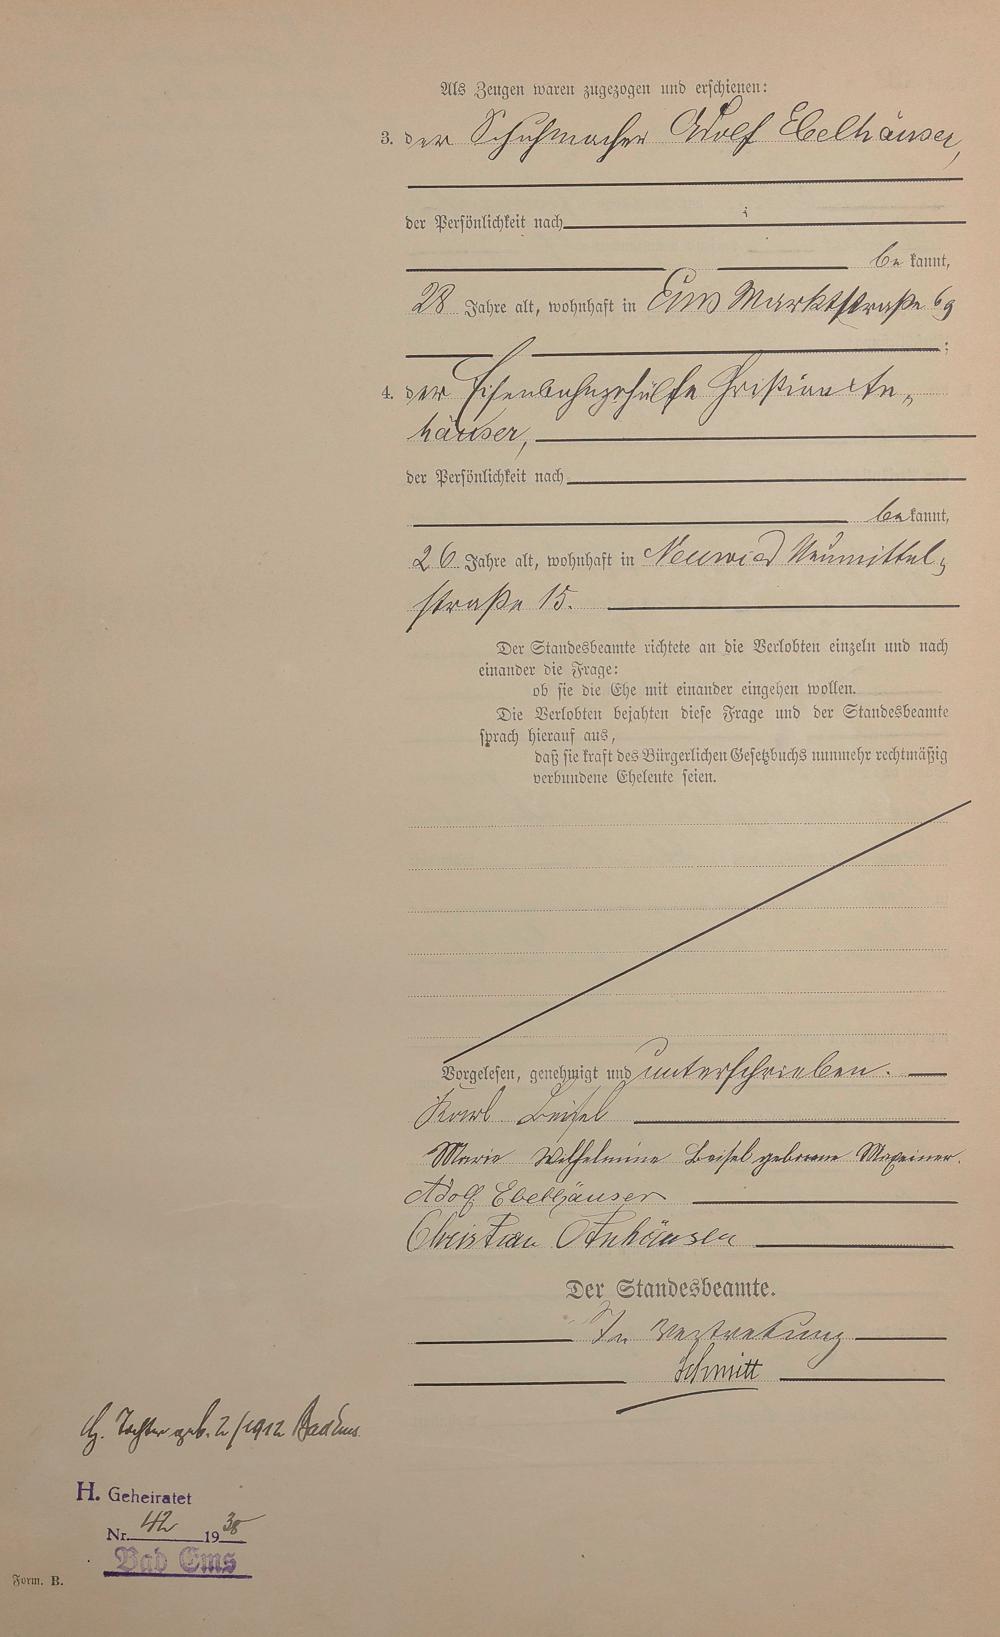 Als Zeugen waren zugezogen und erschienen:
3. der Schuhmacher Adolf Ebelhäuser,
der Persönlichkeit nach
be kannt,
28 Jahre alt, wohnhaft in Ems Marktstraße 69
;
4. der Eisenbahngehülfe Christian An-
häuser,
der Persönlichkeit nach
be kannt,
26 Jahre alt, wohnhaft in Neuwied Neumittel-
straße 15.
Der Standesbeamte richtete an die Verlobten einzeln und nach
einander die Frage:
ob sie die Ehe mit einander eingehen wollen.
Die Verlobten bejahten diese Frage und der Standesbeamte
sprach hierauf aus,
daß sie kraft des Bürgerlichen Gesetzbuchs nunmehr rechtmäßig
verbundene Eheleute seien.
Vorgelesen, genehmigt und unterschrieben.
Karl Beisel
Marie Wilhelmine Beisel geborene Mexeiner.
Adolf Ebelhäuser
Christian Anhäuser
Der Standesbeamte.
In Vertretung
Schmitt
Tochter geb. 2/1912 Bad Ems.
H. Geheiratet
Nr. 42 1938
Bad Ems
Form. B.